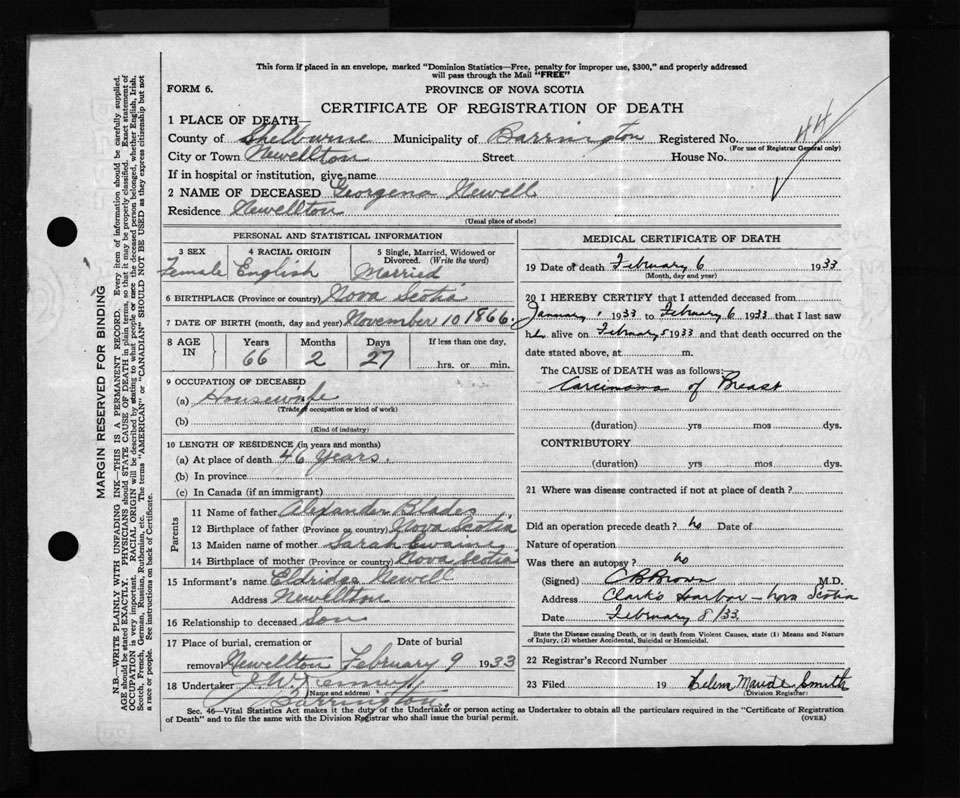 This form if placed in an envelope, marked "Dominion Statistics—Free, penalty for improper use, $300," and properly addressed
will pass through the Mail "FREE"
FORM 6.
PROVINCE OF NOVA SCOTIA
CERTIFICATE OF REGISTRATION OF DEATH
1 PLACE OF DEATH—
County of Shelburne Municipality of Barrington Registered No. 44
(For use of Registrar General only)
City or Town Newellton Street House No.
If in hospital or institution, give name
2 NAME OF DECEASED Georgena Newell
Residence Newellton
(Usual place of abode)
PERSONAL AND STATISTICAL INFORMATION
3 SEX 4 RACIAL ORIGIN 5 Single, Married, Widowed or
Divorced. (Write the word)
Female English Married
6 BIRTHPLACE (Province or country) Nova Scotia
7 DATE OF BIRTH (month, day and year) November 10 1866.
8 AGE IN Years Months Days If less than one day,
66 2 27 hrs. or min.
9 OCCUPATION OF DECEASED
(a) Housewife
(Trade, occupation or kind of work)
(b)
(Kind of industry)
10 LENGTH OF RESIDENCE (in years and months)
(a) At place of death 46 Years.
(b) In province
(c) In Canada (if an immigrant)
Parents
11 Name of father Alexander Blades
12 Birthplace of father (Province or country) Nova Scotia
13 Maiden name of mother Sarah Swaine
14 Birthplace of mother (Province or country) Nova Scotia
15 Informant's name Eldridge Newell
Address Newellton
16 Relationship to deceased Son
17 Place of burial, cremation or Date of burial
removal Newellton February 9 1933
18 Undertaker
(Name and address)
Barrington.
MEDICAL CERTIFICATE OF DEATH
19 Date of death February 6 1933
(Month, day and year)
20 I HEREBY CERTIFY that I attended deceased from
January, 1933 to February 6 1933 that I last saw
her alive on February 5 1933 and that death occurred on the
date stated above, at m.
The CAUSE OF DEATH was as follows:
Carcinoma of Breast
(duration) yrs mos dys.
CONTRIBUTORY
(duration) yrs mos dys.
21 Where was disease contracted if not at place of death ?
Did an operation precede death ? no Date of
Nature of operation
Was there an autopsy ? no
(Signed) CB Brown M.D.
Address Clark's Harbor – Nova Scotia
Date February 8/33.
State the Disease causing Death, or in death from Violent Causes, state (1) Means and Nature
of Injury, (2) whether Accidental, Suicidal or Homicidal.
22 Registrar's Record Number
23 Filed 19 Helen Maude Smith
(Division Registrar)
Sec. 46—Vital Statistics Act makes it the duty of the Undertaker or person acting as Undertaker to obtain all the particulars required in the "Certificate of Registration
of Death" and to file the same with the Division Registrar who shall issue the burial permit.
(OVER)
MARGIN RESERVED FOR BINDING
N.B.—WRITE PLAINLY WITH UNFADING INK—THIS IS A PERMANENT RECORD. Every item of information should be carefully supplied.
AGE should be stated EXACTLY. PHYSICIANS should STATE CAUSE OF DEATH in plain terms, so that it may be properly classified. Exact statement of
OCCUPATION is very important. RACIAL ORIGIN will be described by stating to what people or race the deceased person belonged, whether English, Irish,
Scotch, French, German, Russian, Ruthenian, etc. The terms "AMERICAN" or "CANADIAN" SHOULD NOT BE USED as they express citizenship but not
a race or people. See instructions on back of Certificate.